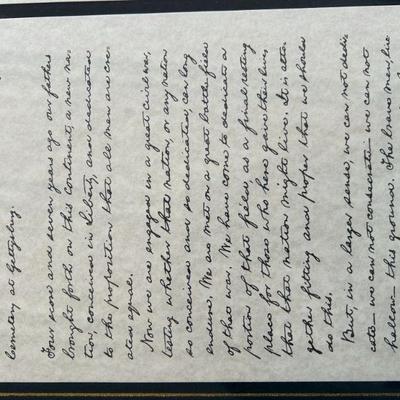 Cemetery at Gettysburg.
Four score and seven years ago our fathers
brought forth on this continent, a new na-
tion, conceived in Liberty, and dedicated
to the proposition that all men are cre-
ated equal.
Now we are engaged in a great civil war,
testing whether that nation, or any nation
so conceived and so dedicated, can long
endure. We are met on a great battle-field
of that war. We have come to dedicate a
portion of that field, as a final resting
place for those who here gave their lives
that that nation might live. It is alto-
gether fitting and proper that we should
do this.
But, in a larger sense, we can not dedi-
cate — we can not consecrate — we can not
hallow — this ground. The brave men, liv-